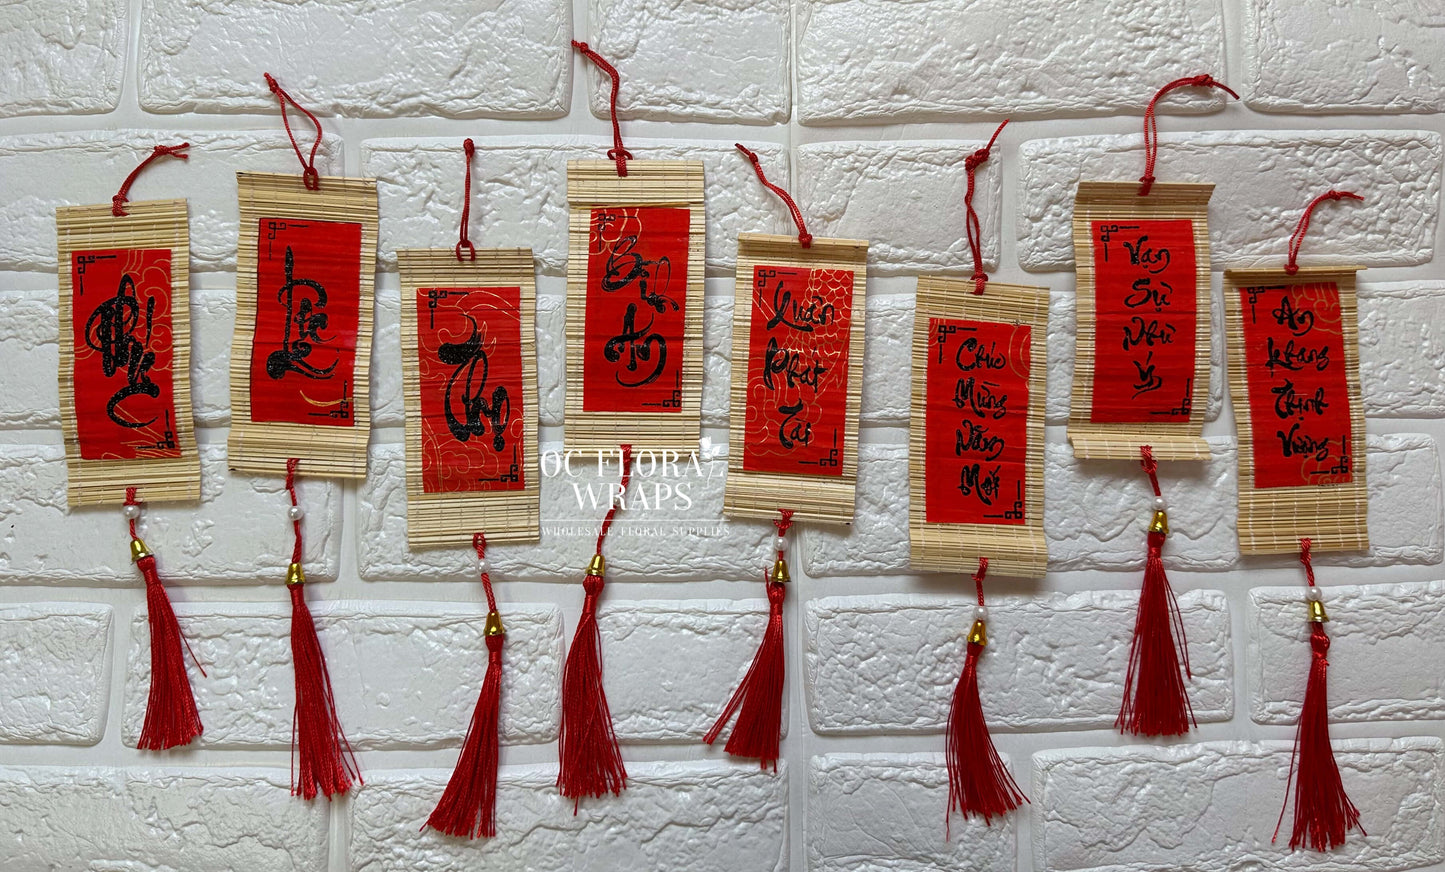 Phúc
Lộc
Thọ
Bình
An
Xuân
Phát
Tài
Chúc
Mừng
Năm
Mới
Vạn
Sự
Như
Ý
An
Khang
Thịnh
Vượng
OC FLORAL
WRAPS
WHOLESALE FLORAL SUPPLIES